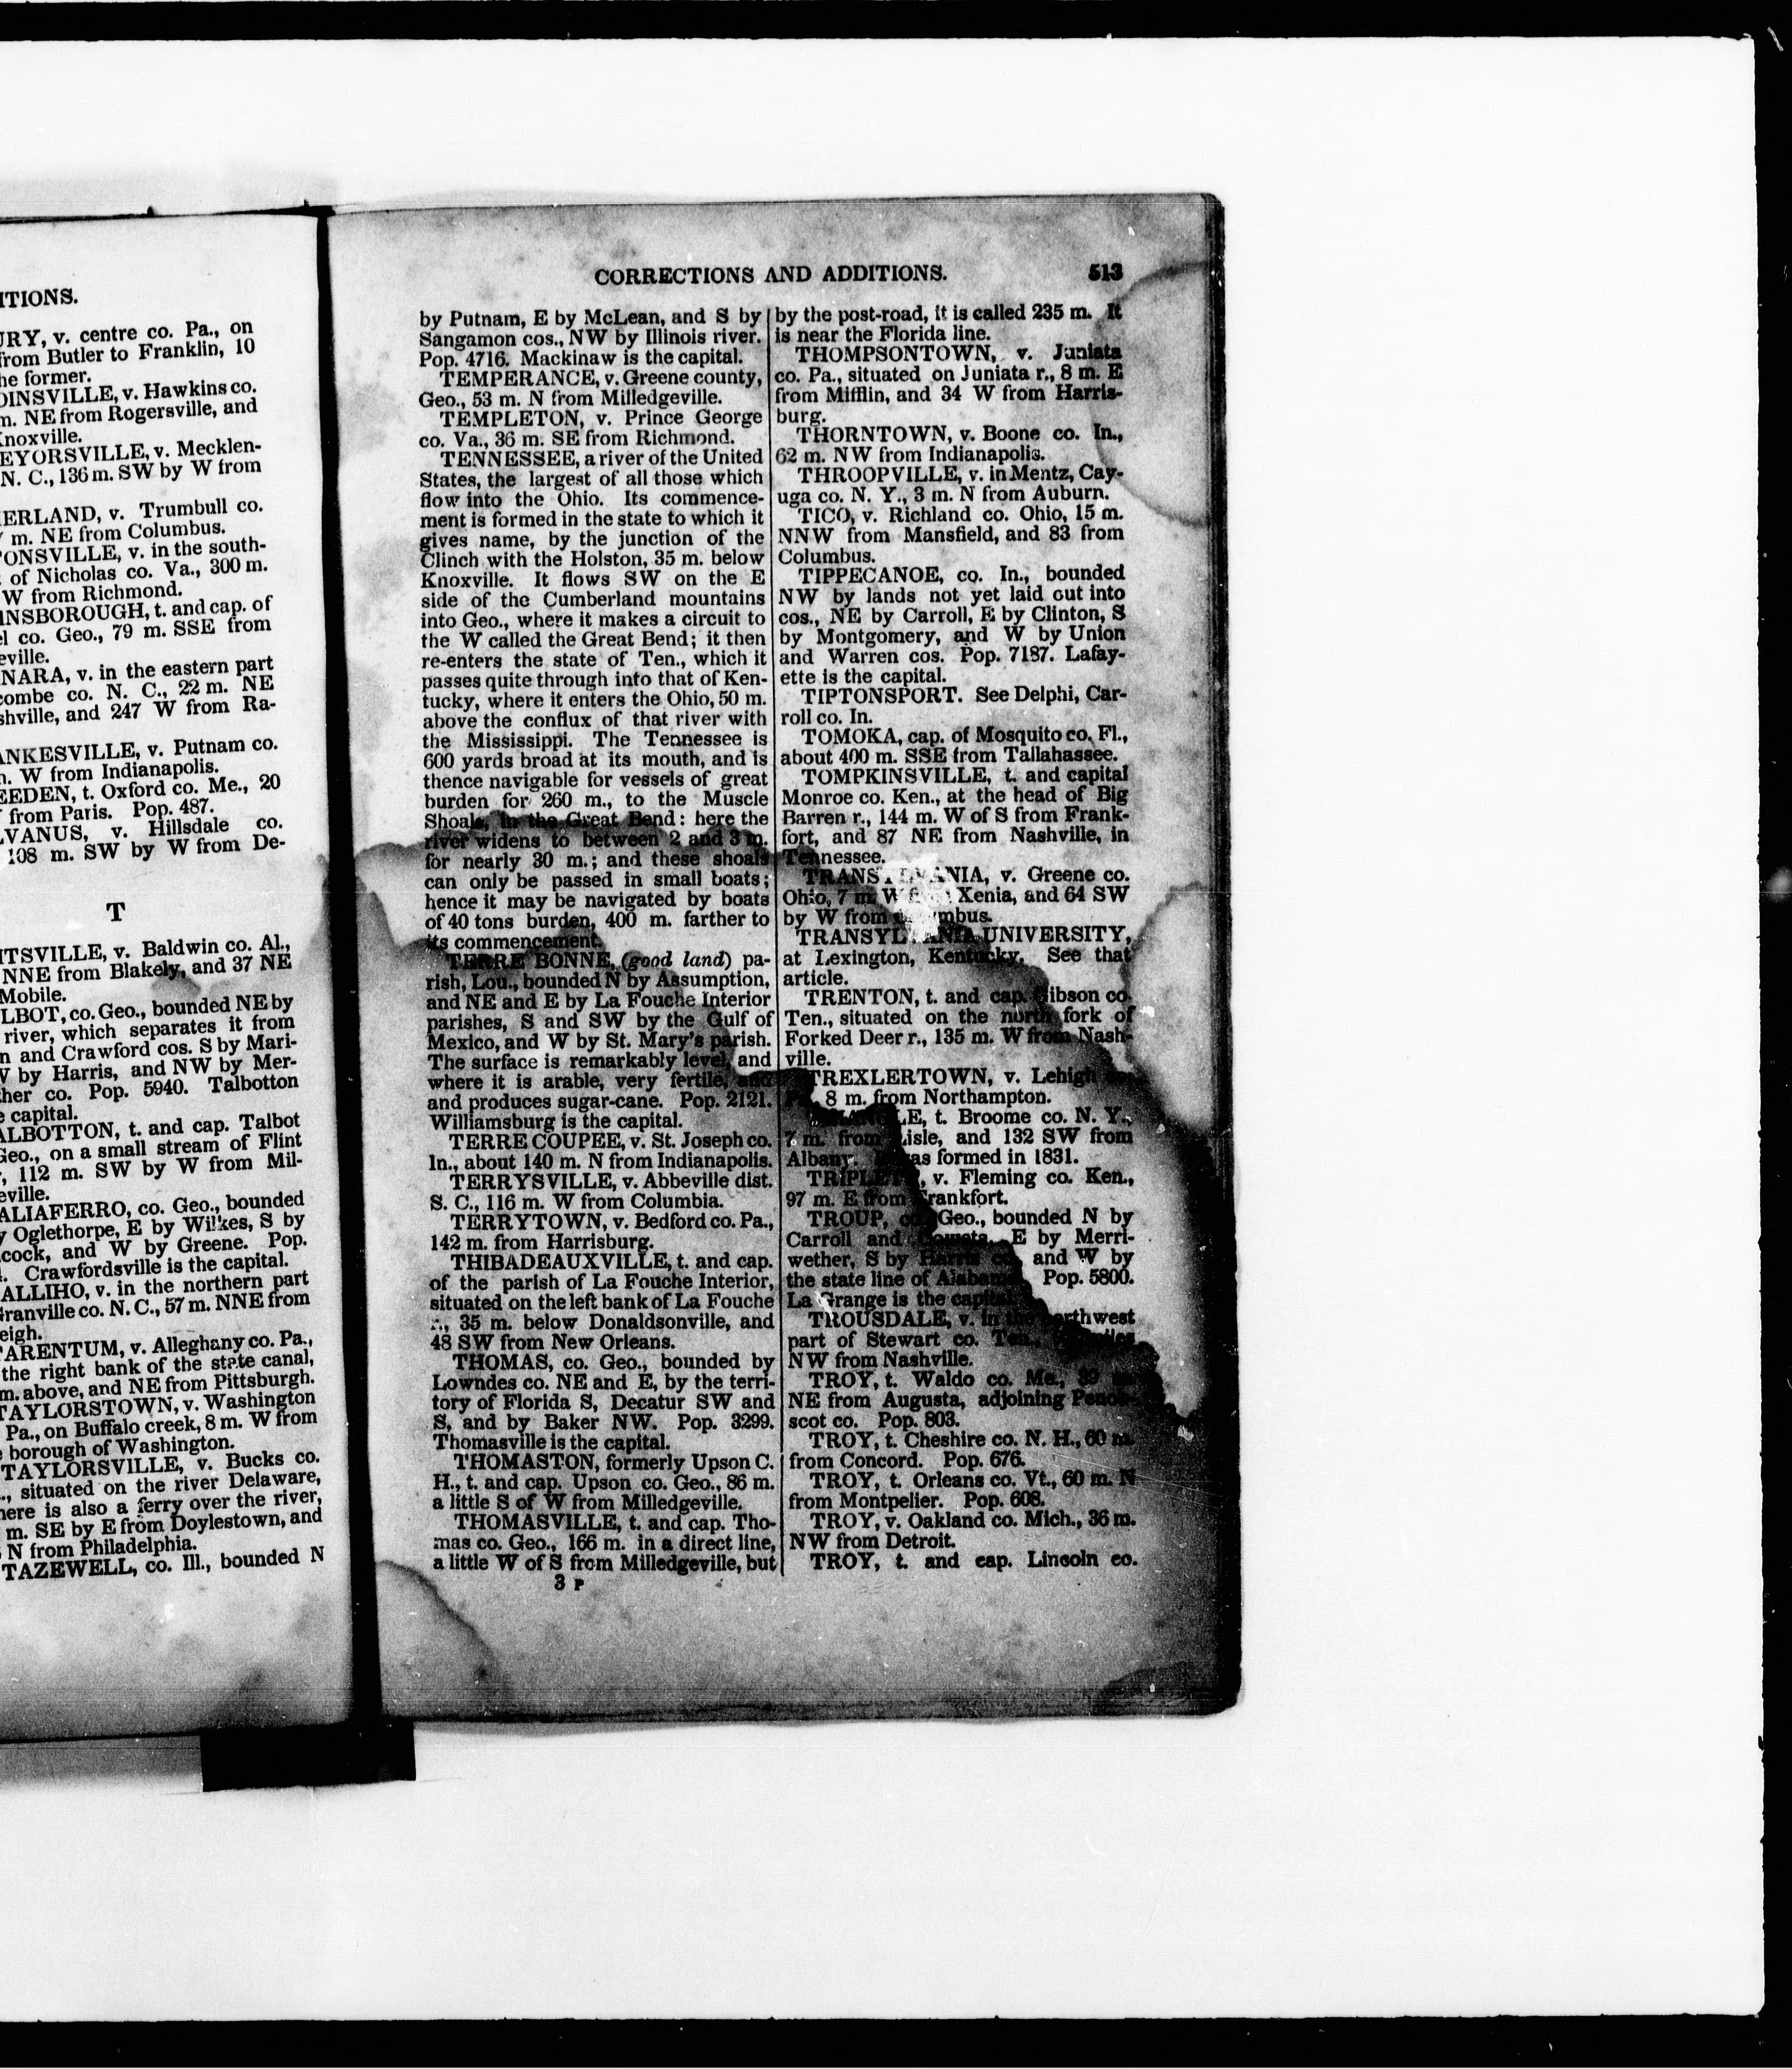 ITIONS.
URY, v. centre co. Pa., on
from Butler to Franklin, 10
he former.
OINSVILLE, v. Hawkins co.
m. NE from Rogersville, and
Knoxville.
EYORSVILLE, v. Mecklen-
N. C., 136 m. SW by W from
ERLAND, v. Trumbull co.
m. NE from Columbus.
ONSVILLE, v. in the south-
of Nicholas co. Va., 300 m.
W from Richmond.
INSBOROUGH, t. and cap. of
el co. Geo., 79 m. SSE from
eville.
NARA, v. in the eastern part
combe co. N. C., 22 m. NE
shville, and 247 W from Ra-
ANKESVILLE, v. Putnam co.
n. W from Indianapolis.
EEDEN, t. Oxford co. Me., 20
from Paris. Pop. 487.
LVANUS, v. Hillsdale co.
108 m. SW by W from De-
T
ITSVILLE, v. Baldwin co. Al.,
NNE from Blakely, and 37 NE
Mobile.
LBOT, co. Geo., bounded NE by
river, which separates it from
n and Crawford cos. S by Mari-
W by Harris, and NW by Mer-
her co. Pop. 5940. Talbotton
e capital.
ALBOTTON, t. and cap. Talbot
Geo., on a small stream of Flint
, 112 m. SW by W from Mil-
eville.
ALIAFERRO, co. Geo., bounded
y Oglethorpe, E by Wilkes, S by
cock, and W by Greene. Pop.
. Crawfordsville is the capital.
ALLIHO, v. in the northern part
Granville co. N. C., 57 m. NNE from
eigh.
TARENTUM, v. Alleghany co. Pa.,
the right bank of the state canal,
m. above, and NE from Pittsburgh.
TAYLORSTOWN, v. Washington
Pa., on Buffalo creek, 8 m. W from
borough of Washington.
TAYLORSVILLE, v. Bucks co.
., situated on the river Delaware,
here is also a ferry over the river,
m. SE by E from Doylestown, and
N from Philadelphia.
TAZEWELL, co. Ill., bounded N
CORRECTIONS AND ADDITIONS. 513
by Putnam, E by McLean, and S by
Sangamon cos., NW by Illinois river.
Pop. 4716. Mackinaw is the capital.
TEMPERANCE, v. Greene county,
Geo., 53 m. N from Milledgeville.
TEMPLETON, v. Prince George
co. Va., 36 m. SE from Richmond.
TENNESSEE, a river of the United
States, the largest of all those which
flow into the Ohio. Its commence-
ment is formed in the state to which it
gives name, by the junction of the
Clinch with the Holston, 35 m. below
Knoxville. It flows SW on the E
side of the Cumberland mountains
into Geo., where it makes a circuit to
the W called the Great Bend; it then
re-enters the state of Ten., which it
passes quite through into that of Ken-
tucky, where it enters the Ohio, 50 m.
above the conflux of that river with
the Mississippi. The Tennessee is
600 yards broad at its mouth, and is
thence navigable for vessels of great
burden for 260 m., to the Muscle
Shoals, in the Great Bend: here the
river widens to between 2 and 3 m.
for nearly 30 m.; and these shoals
can only be passed in small boats;
hence it may be navigated by boats
of 40 tons burden, 400 m. farther to
its commencement.
TERRE BONNE, (good land) pa-
rish, Lou., bounded N by Assumption,
and NE and E by La Fouche Interior
parishes, S and SW by the Gulf of
Mexico, and W by St. Mary's parish.
The surface is remarkably level, and
where it is arable, very fertile, and
and produces sugar-cane. Pop. 2121.
Williamsburg is the capital.
TERRE COUPEE, v. St. Joseph co.
In., about 140 m. N from Indianapolis.
TERRYSVILLE, v. Abbeville dist.
S. C., 116 m. W from Columbia.
TERRYTOWN, v. Bedford co. Pa.,
142 m. from Harrisburg.
THIBADEAUXVILLE, t. and cap.
of the parish of La Fouche Interior,
situated on the left bank of La Fouche
r., 35 m. below Donaldsonville, and
48 SW from New Orleans.
THOMAS, co. Geo., bounded by
Lowndes co. NE and E, by the terri-
tory of Florida S, Decatur SW and
S, and by Baker NW. Pop. 3299.
Thomasville is the capital.
THOMASTON, formerly Upson C.
H., t. and cap. Upson co. Geo., 86 m.
a little S of W from Milledgeville.
THOMASVILLE, t. and cap. Tho-
mas co. Geo., 166 m. in a direct line,
a little W of S from Milledgeville, but
3 P
by the post-road, it is called 235 m. It
is near the Florida line.
THOMPSONTOWN, v. Juniata
co. Pa., situated on Juniata r., 8 m. E
from Mifflin, and 34 W from Harris-
burg.
THORNTOWN, v. Boone co. In.,
62 m. NW from Indianapolis.
THROOPVILLE, v. in Mentz, Cay-
uga co. N. Y., 3 m. N from Auburn.
TICO, v. Richland co. Ohio, 15 m.
NNW from Mansfield, and 83 from
Columbus.
TIPPECANOE, co. In., bounded
NW by lands not yet laid out into
cos., NE by Carroll, E by Clinton, S
by Montgomery, and W by Union
and Warren cos. Pop. 7187. Lafay-
ette is the capital.
TIPTONSPORT. See Delphi, Car-
roll co. In.
TOMOKA, cap. of Mosquito co. Fl.,
about 400 m. SSE from Tallahassee.
TOMPKINSVILLE, t. and capital
Monroe co. Ken., at the head of Big
Barren r., 144 m. W of S from Frank-
fort, and 87 NE from Nashville, in
Tennessee.
TRANSYLVANIA, v. Greene co.
Ohio, 7 m. W from Xenia, and 64 SW
by W from Columbus.
TRANSYLVANIA UNIVERSITY,
at Lexington, Kentucky. See that
article.
TRENTON, t. and cap. Gibson co.
Ten., situated on the north fork of
Forked Deer r., 135 m. W from Nash-
ville.
TREXLERTOWN, v. Lehigh co.
8 m. from Northampton.
LE, t. Broome co. N. Y.,
7 m. from Lisle, and 132 SW from
Albany. was formed in 1831.
TRIPLETT, v. Fleming co. Ken.,
97 m. E from Frankfort.
TROUP, co. Geo., bounded N by
Carroll and Coweta, E by Merri-
wether, S by Harris co. and W by
the state line of Alabama. Pop. 5800.
La Grange is the capital.
TROUSDALE, v. in the northwest
part of Stewart co. Ten.
NW from Nashville.
TROY, t. Waldo co. Me.,
NE from Augusta, adjoining Penob-
scot co. Pop. 803.
TROY, t. Cheshire co. N. H., 60 m.
from Concord. Pop. 676.
TROY, t. Orleans co. Vt., 60 m. N
from Montpelier. Pop. 608.
TROY, v. Oakland co. Mich., 36 m.
NW from Detroit.
TROY, t. and cap. Lincoln co.